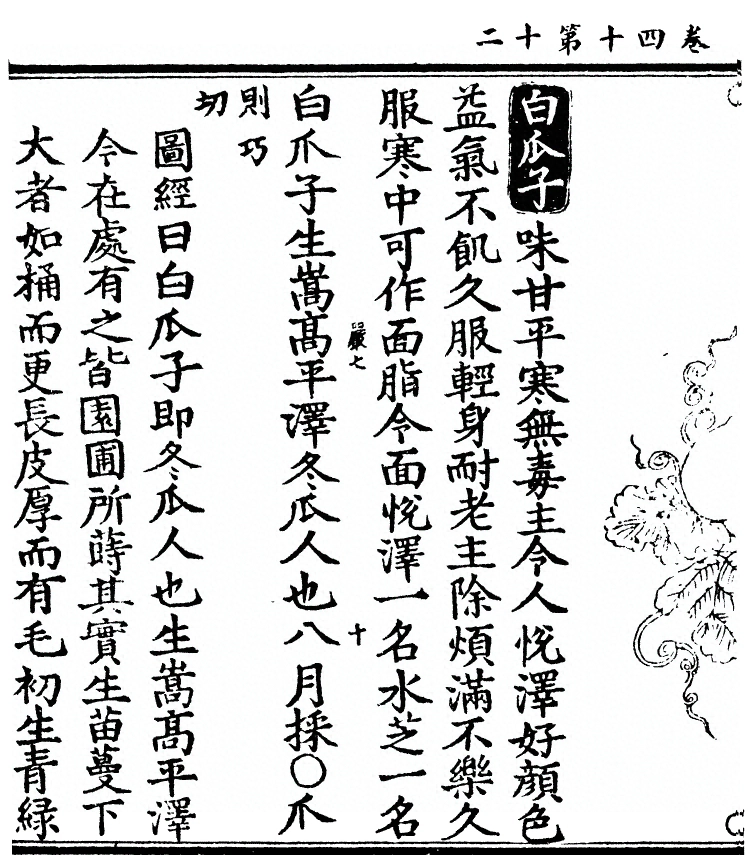 卷四十第十二
白瓜子味甘平寒無毒主令人悅澤好顏色
益氣不飢久服輕身耐老主除煩滿不樂久
服寒中可作面脂令面悅澤一名水芝一名
嚴七
十
白爪子生嵩高平澤冬瓜人也八月採〇爪
則巧
切
圖經曰白瓜子即冬瓜人也生嵩高平澤
今在處有之皆園圃所蒔其實生苗蔓下
大者如桶而更長皮厚而有毛初生青緑